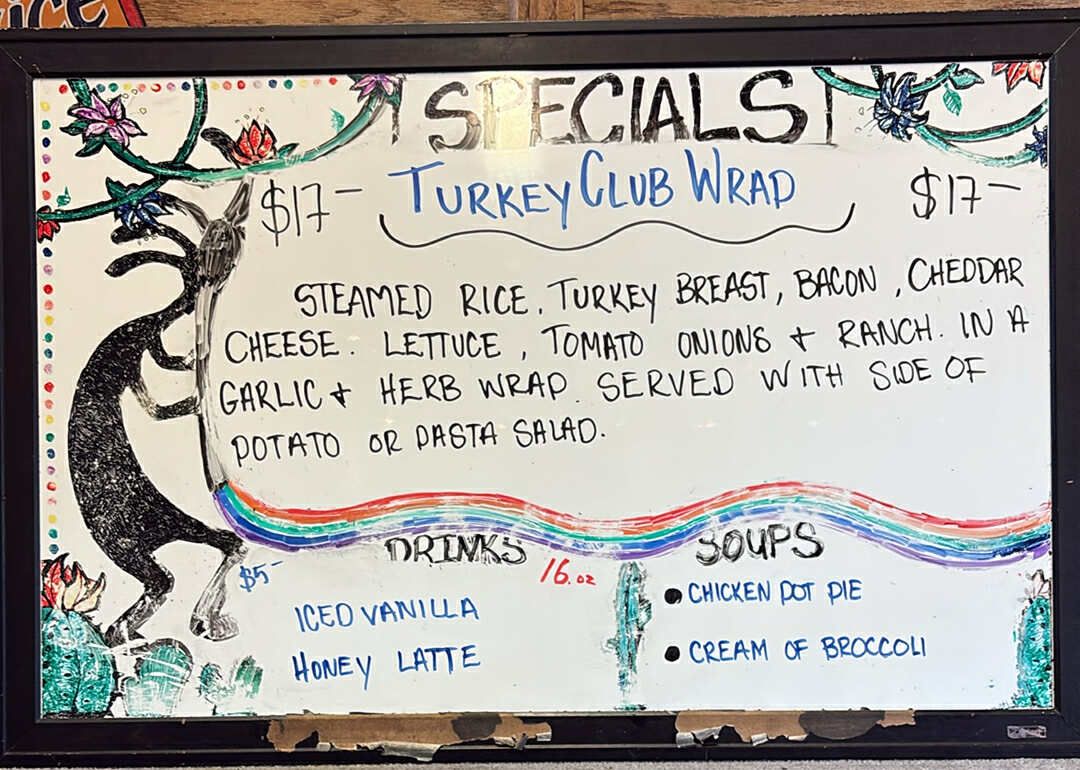 SPECIALS
$17- TURKEY CLUB WRAP $17-
STEAMED RICE, TURKEY BREAST, BACON, CHEDDAR
CHEESE. LETTUCE, TOMATO ONIONS + RANCH. IN A
GARLIC + HERB WRAP. SERVED WITH SIDE OF
POTATO OR PASTA SALAD.
DRINKS
$5- 16.oz
ICED VANILLA
HONEY LATTE
SOUPS
• CHICKEN POT PIE
• CREAM OF BROCCOLI